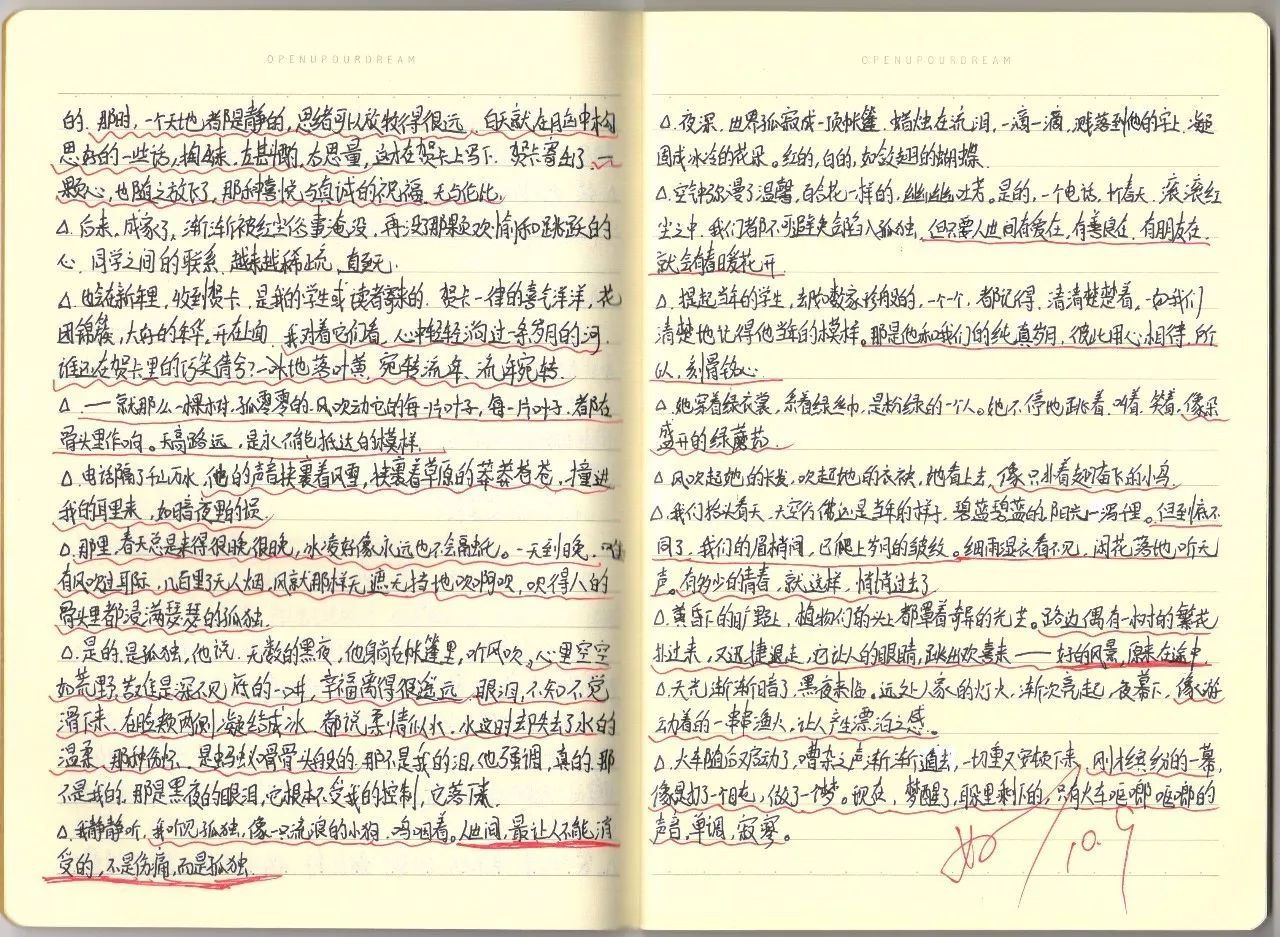 OPENUPOURDREAM
的. 那时, 一个天地都是静的, 思绪可以放牧得很远. 白天就在脑中构
思好的一些话, 掏出来, 左斟酌, 右思量, 这才在贺卡上写下. 贺卡寄出了, 一
颗心, 也随之放下了, 那种喜悦与真诚的祝福, 无与伦比.
△. 后来. 成家了, 渐渐被红尘俗事淹没, 再没了那颗欢愉和踊跃的
心. 同学之间的联系, 越来越稀疏, 直至无.
△. 也会在新年里, 收到贺卡. 是我的学生或读者寄来的. 贺卡一律的喜气洋洋, 花
团锦簇, 大好的年华. 开在上面. 我对着它们看, 心中轻轻淌过一条岁月的河.
谁还在贺卡里巧笑倩兮? 一水地落叶黄, 宛转流年、流年宛转.
△. ——就那么一棵树, 孤零零的. 风吹动它的每一片叶子, 每一片叶子, 都在
骨头里作响。天高路远, 是永不能抵达的模样.
△. 电话隔了千山万水, 他的声音挟裹着风雪, 挟裹着草原的莽莽苍苍, 撞进
我的耳里来, 如暗夜里的埙
△. 那里, 春天总是来得很晚很晚, 冰凌好像永远也不会融化。一天到晚,
有风吹过耳际, 几百里了无人烟, 风就那样无遮无挡地吹啊吹, 吹得人的
骨头里都浸满瑟瑟的孤独.
△. 是的, 是孤独, 他说. 无数的黑夜, 他躺在帐篷里, 听风吹. 心里空空
如荒野. 苦难是深不见底的一口井, 幸福离得很遥远. 眼泪, 不知不觉
滑下来. 在脸颊两侧凝结成冰. 都说柔情似水, 水这时却失去了水的
温柔. 那种伤怀. 是蚂蚁啃骨头般的. 那不是我的泪, 他强调, 真的, 那
不是我的. 那是黑夜的眼泪, 它根本不受我的控制, 它落下来.
△. 我静静听, 我听见孤独, 像一只流浪的小狗, 呜咽着。人世间, 最让人不能消
受的, 不是伤痛, 而是孤独.
OPENUPOURDREAM
△. 夜深, 世界孤寂成一顶帐篷. 蜡烛在流泪, 一滴一滴, 溅落到他的字上, 凝
固成冰冷的花朵。红的, 白的, 如敛翅的蝴蝶.
△. 空气弥漫了温馨, 百合花一样的, 幽幽吐芳。是的, 一个电话, 一折春天. 滚滚红
尘之中, 我们都不可避免会陷入孤独, 但只要人世间有爱在, 有善良在, 有朋友在,
就会有春暖花开
△. 提起当年的学生, 去如数家珍般的, 一个个, 都记得, 清清楚楚着。一如我们
清楚地记得他当年的模样。那是他和我们的纯真岁月, 彼此用心相待, 所
以, 刻骨铭心.
△. 她穿着绿衣裳, 系着绿丝巾, 是粉绿的一个人。她不停地跳着. 叫着, 笑着, 像朵
盛开的绿蘑菇.
△. 风吹起她的长发, 吹起她的衣袂, 她看上去, 像只扑着翅奋飞的小鸟.
△. 我们抬头看天, 天空仿佛还是当年的样子, 碧蓝碧蓝的, 阳光一泻千里. 但到底不
同了, 我们的眉梢间, 已爬上岁月的皱纹。细雨湿衣看不见, 闲花落地听无
声。有多少的青春, 就这样, 悄悄过去了.
△. 黄昏下的旷野上, 植物们的头上都罩着奇异的光芒。路边偶有一树的繁花
扑过来, 又迅捷退走, 它让人的眼睛, 跳出欢喜来——好的风景, 原来在途中.
△. 天光渐渐暗了, 黑夜来临。远处人家的灯火, 渐次亮起, 夜幕下, 像游
动着的一串串渔火, 让人产生漂泊之感.
△. 火车随后又启动了, 嘈杂之声渐渐遁去, 一切重又安顿下来, 刚才缤纷的一幕,
像是打了一个盹, 做了一个梦。现在, 梦醒了, 耳朵里剩下的, 只有火车哐啷哐啷的
声音, 单调, 寂寥。
好
10.9